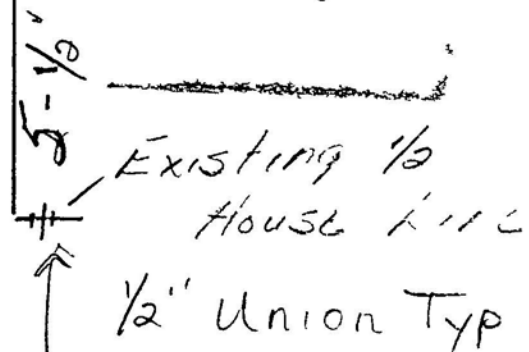 5-1/2"
Existing 1/2
House Line
1/2" Union Typ